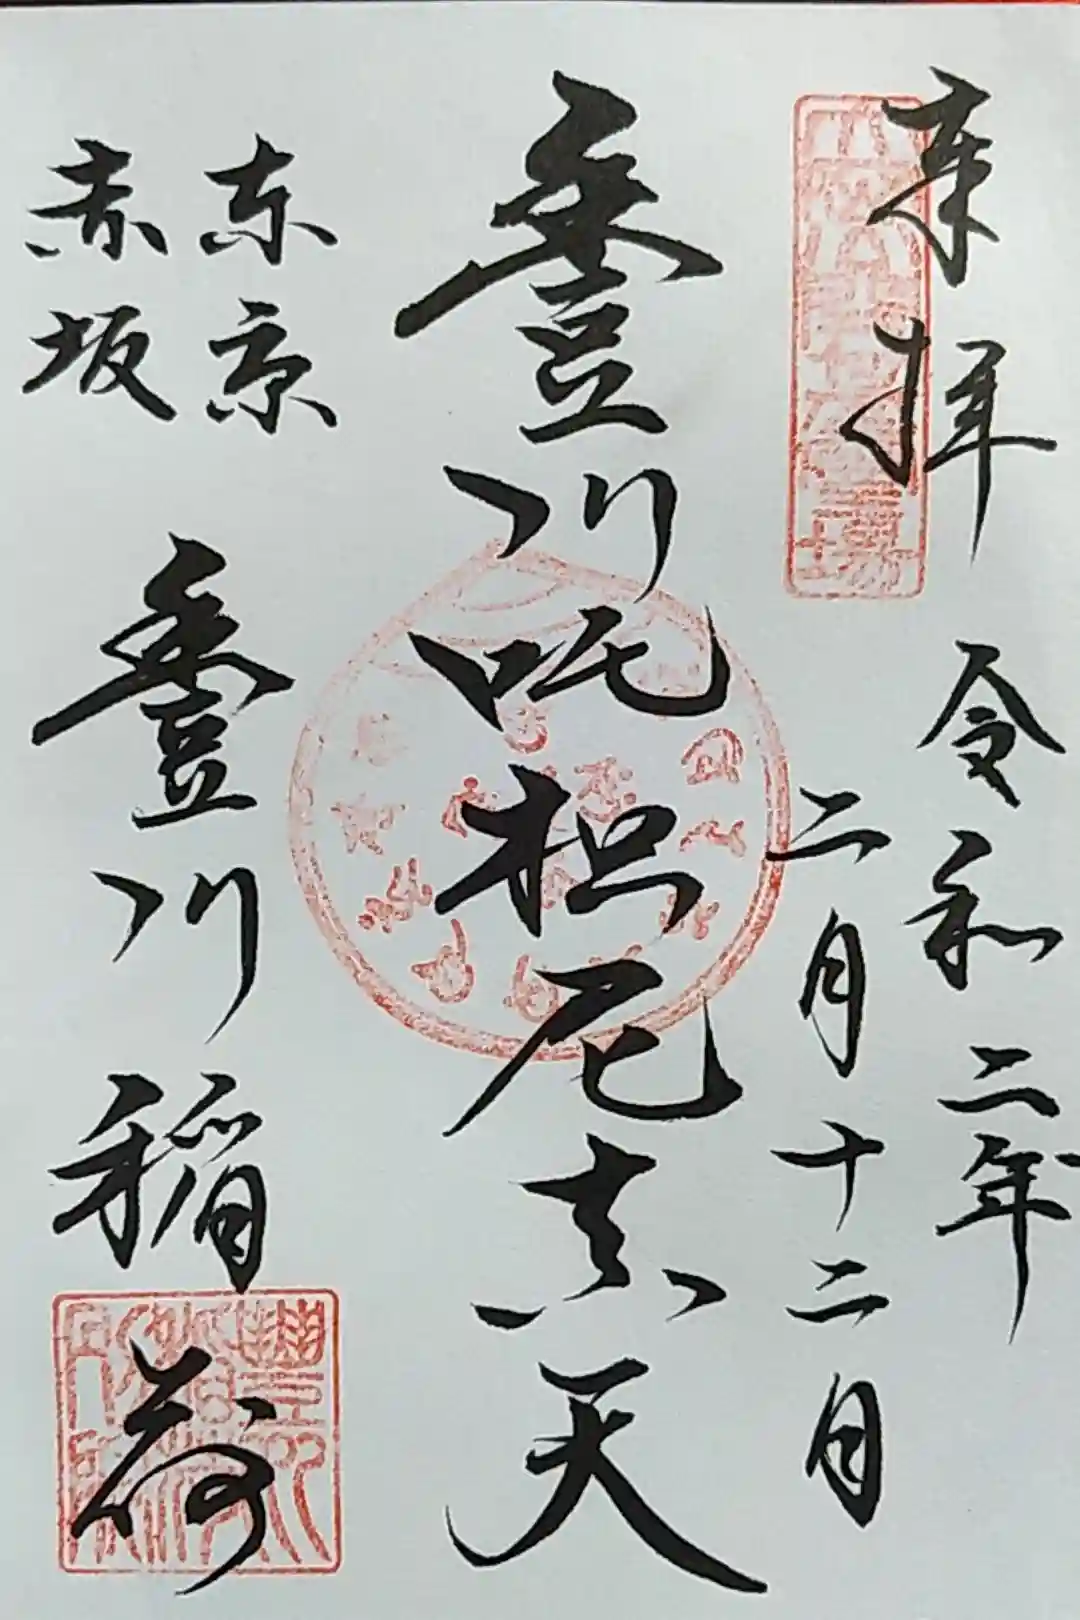 来拝
令和二年
二月十二日
豊川吒枳尼真天
東京
赤坂
豊川稲荷